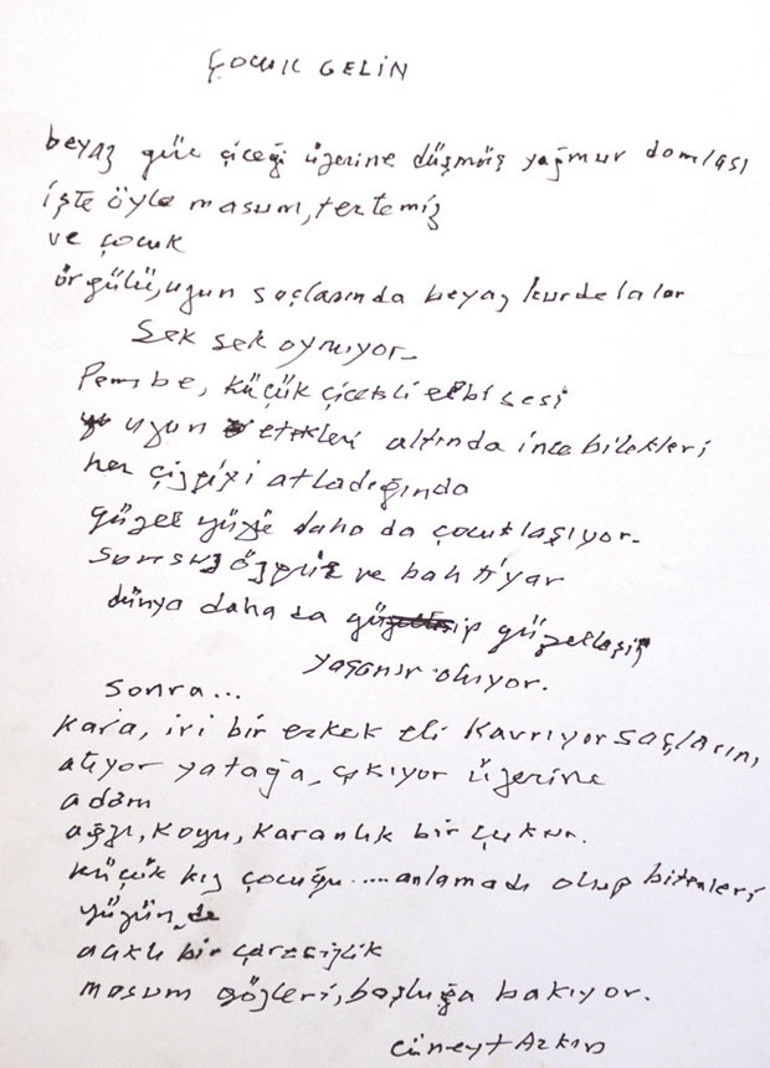 ÇOCUK GELİN
beyaz gül çiceği üzerine düşmüş yağmur domlası
işte öyle masum, tertemiz
ve çocuk
örgülü, uzun saçlarında beyaz kurdelalar
Sek sek oynuyor.
Pembe, küçük çicekli elbisesi
uzun etekleri altında ince bilekleri
her çizgiyi atladığında
güzel yüzü daha da çocuklaşıyor.
Sonsuz özgür ve bahtiyar
dünya daha da güzelleşip
yaşanır oluyor.
Sonra...
Kara, iri bir erkek eli Kavrıyor saçlarını,
atıyor yatağa, çıkıyor üzerine
adam
ağzı, koyu, karanlık bir çukur.
küçük kız çocuğu.....anlamadı olup bitenleri
yüzünde
acıklı bir çaresizlik
masum gözleri, boşluğa bakıyor.
Cüneyt Arkın